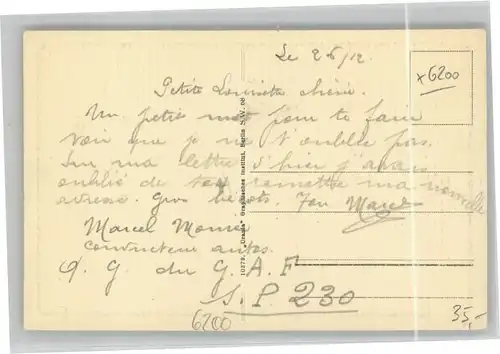 Le 26/12
x 6200
Petite Louisette chérie.
Un petit mot pour te faire
voir que je ne t'oublie pas.
Sur ma lettre d'hier j'avais
oublié de te remettre ma nouvelle
adresse. Gros bécots. Ton Marcel
Marcel
conducteur autos.
Q. G du G. A. F
S. P. 230
6200
35,-
10379. „Orania" Graphisches Institut, Berlin S.W. 68